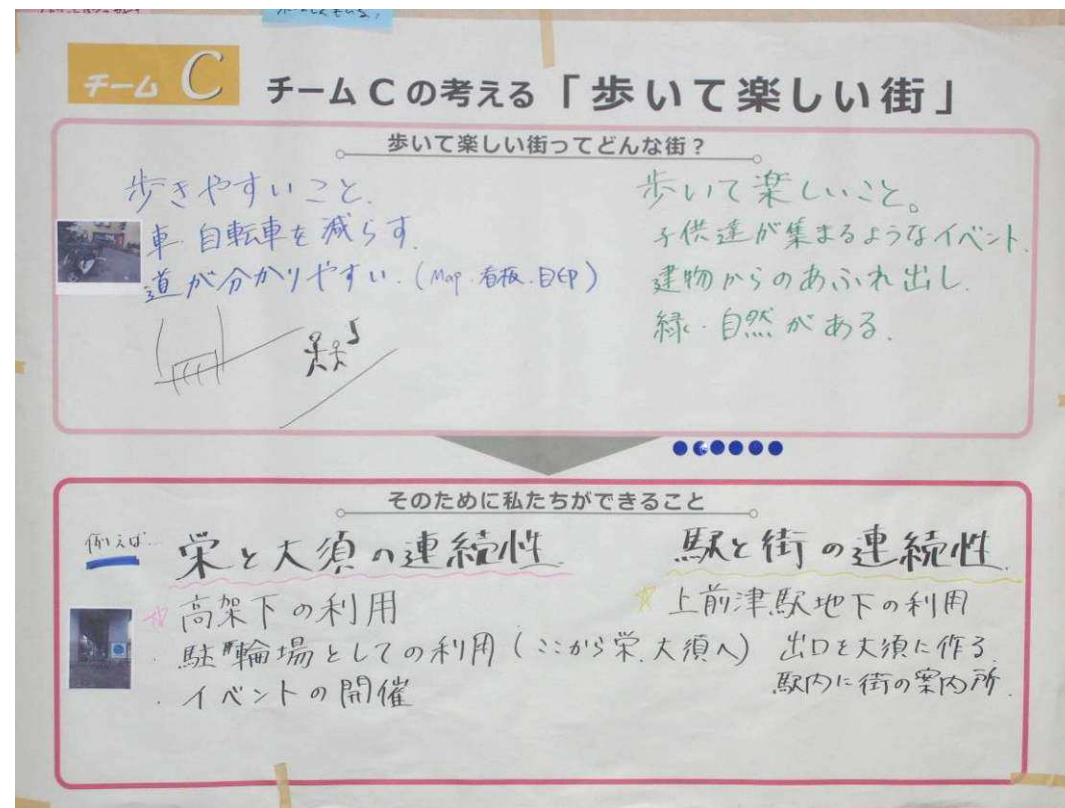 チーム C
チームCの考える「歩いて楽しい街」
歩いて楽しい街ってどんな街?
歩きやすいこと.
車.自転車を減らす.
道が分かりやすい.(Map.看板.目印)
歩いて楽しいこと。
子供達が集まるようなイベント.
建物からのあふれ出し.
緑.自然がある.
そのために私たちができること
例えば…
栄と大須の連続性
☆高架下の利用
.駐輪場としての利用(ここから栄.大須へ)
.イベントの開催
駅と街の連続性.
☆上前津駅地下の利用
出口を大須に作る.
駅内に街の案内所.